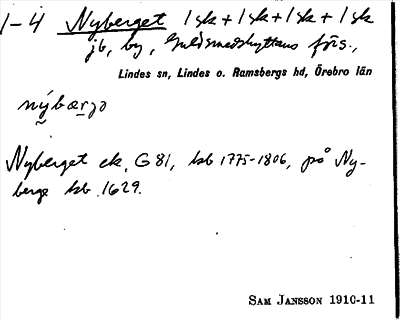 1-4 Nyberget 1 sk + 1 sk + 1 sk + 1 sk
jb, by, Guldsmedshyttans förs.,
Lindes sn, Lindes o. Ramsbergs hd, Örebro län
Nyberget ek. G 81, kb 1775-1806, på Ny-
berge kb 1629.
SAM JANSSON 1910-11